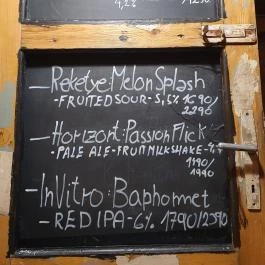 4,2%
- Reketye: Melon Splash
- FRUITED SOUR - 5,5% 1690/
2290
- Horizont: Passion Flick
- PALE ALE - FRUIT MILKSHAKE - 4,4
1490/
1990
- InVitro: Baphomet
- RED IPA - 6% 1790/2390